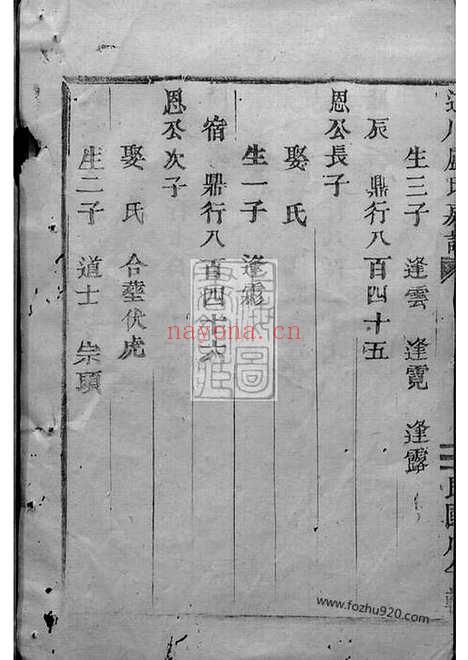 生三子 逢雲 逢霓 逢露
辰 鼎行八百四十五
恩公長子
娶氏
生一子 逢霖
宿 鼎行八百四十六
恩公次子
娶氏 合塟伏虎
生二子 道士 崇項
nayona.cn
www.fozhu920.com